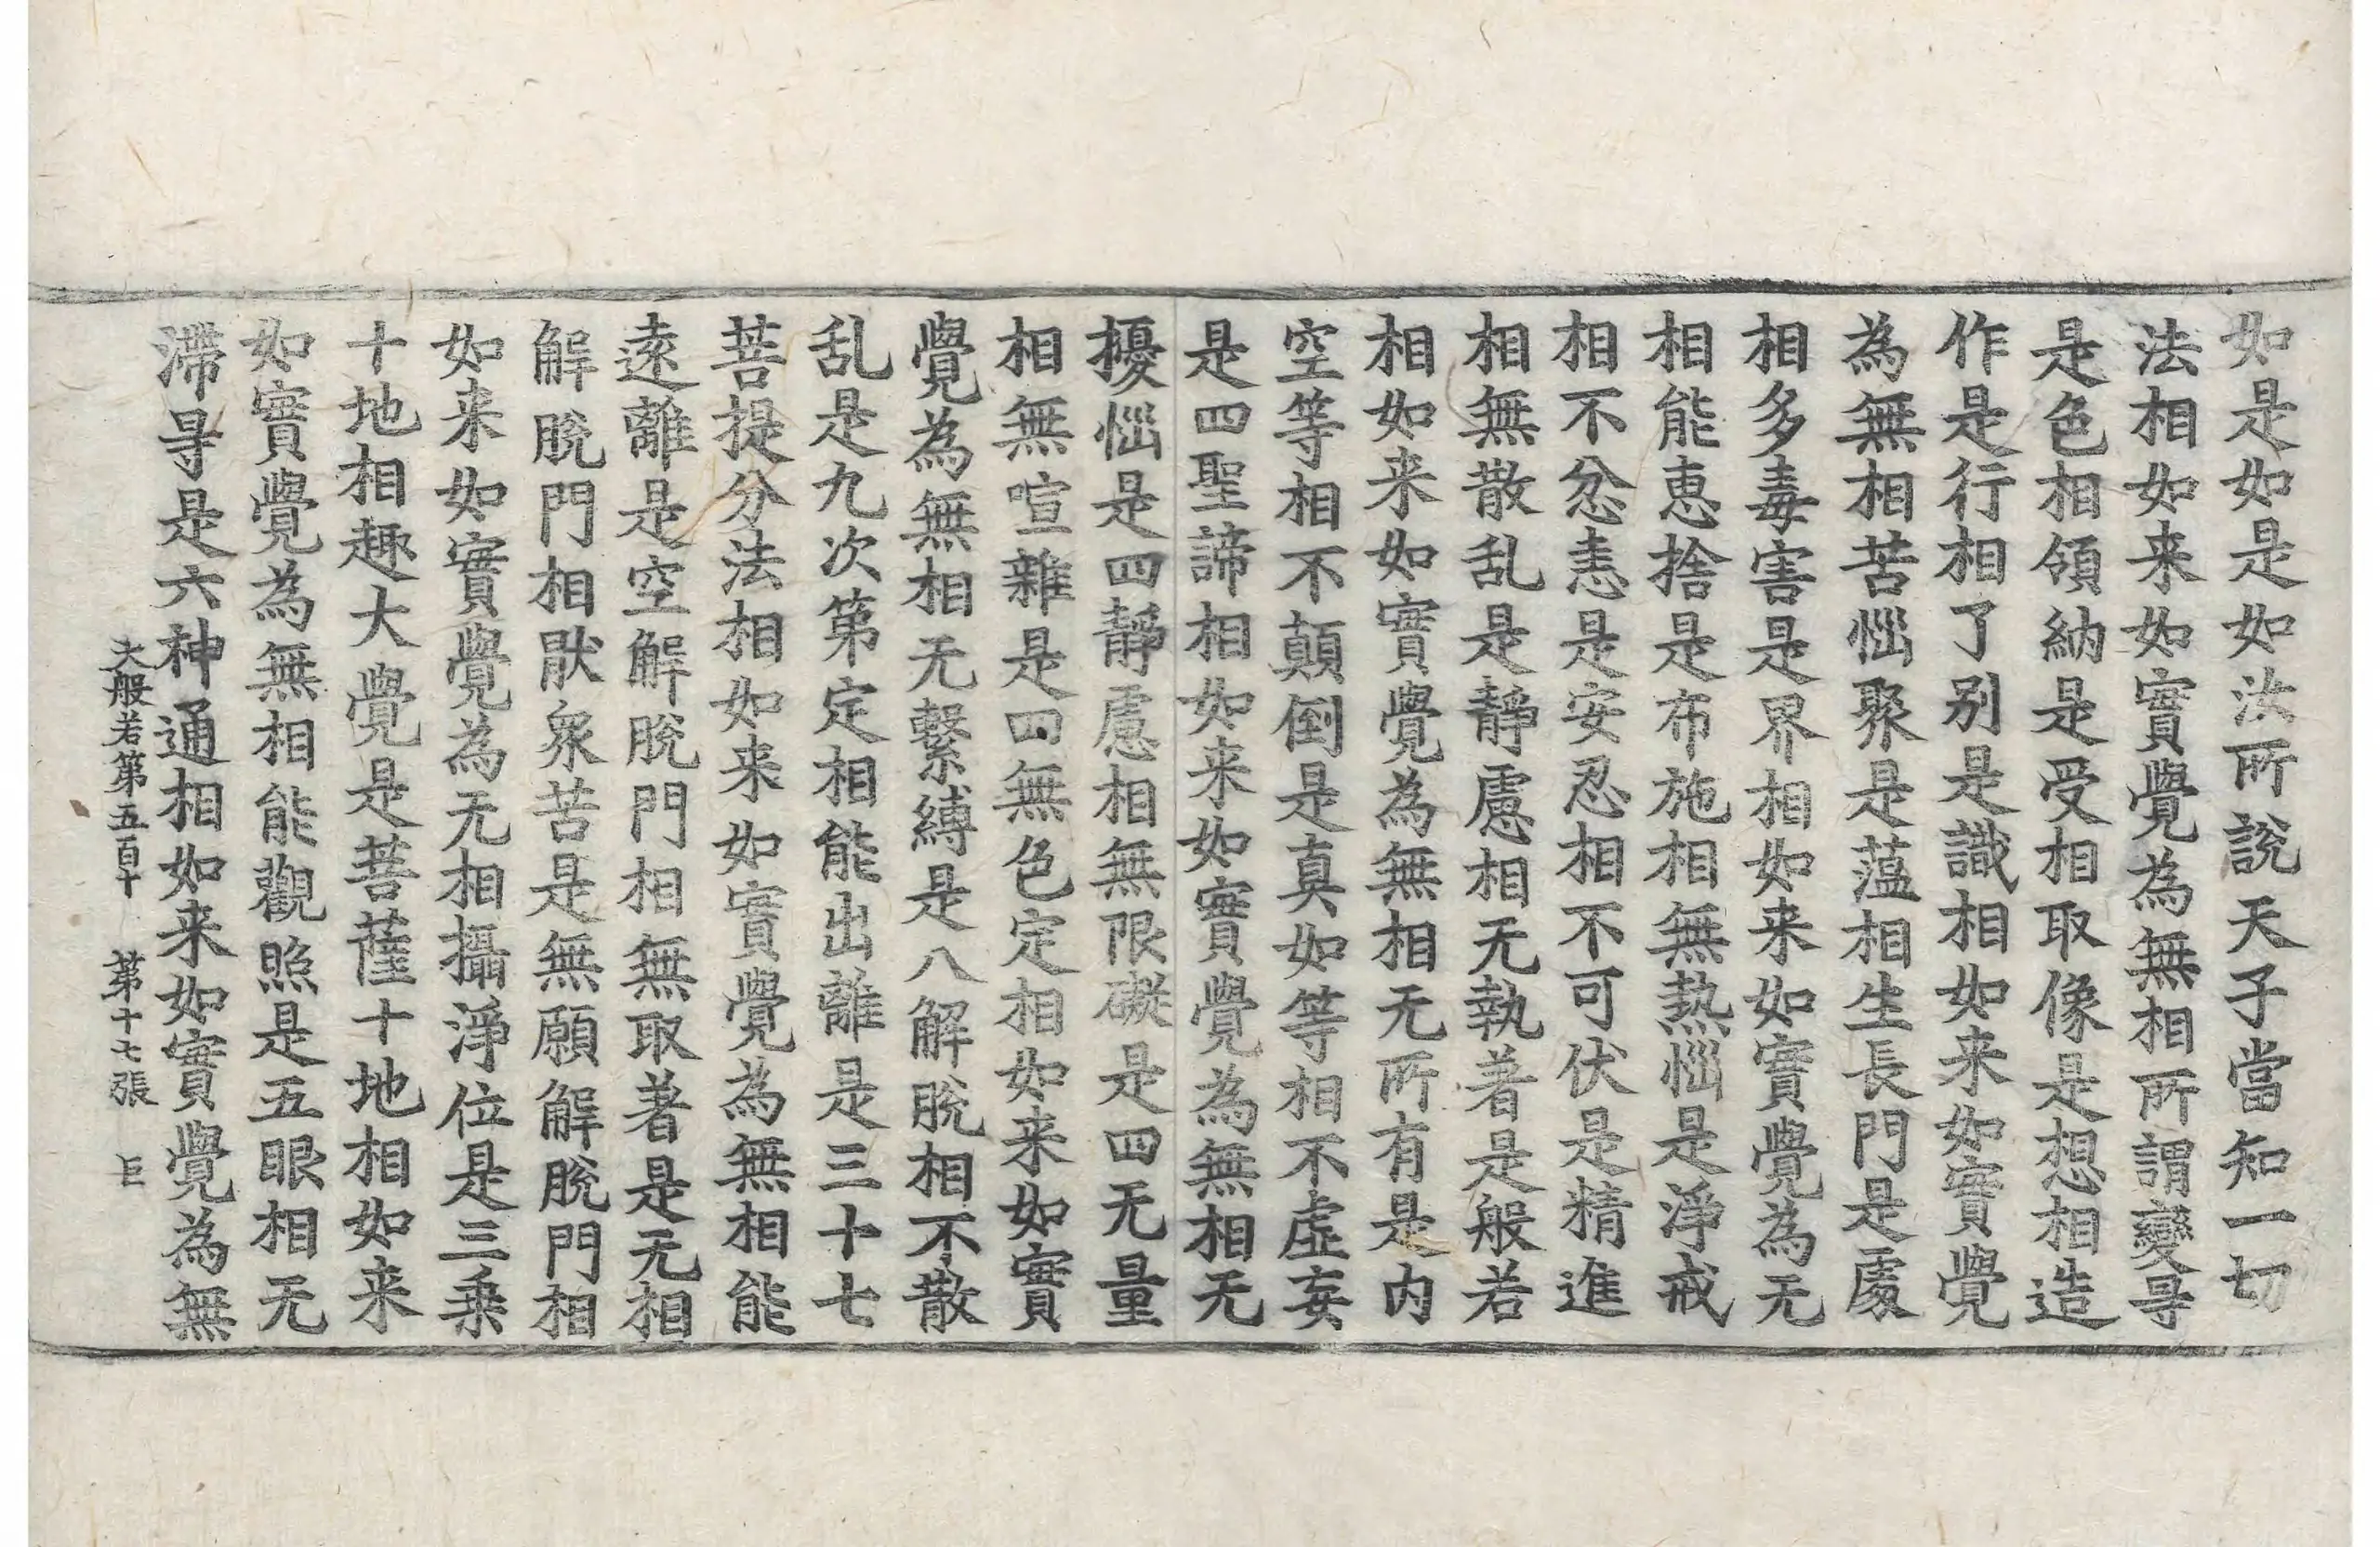 如是如是如汝所說天子當知一切
法相如来如實覺為無相所謂變㝵
是色相領納是受相取像是想相造
作是行相了别是識相如来如實覺
為無相苦惱聚是蘊相生長門是處
相多毒害是界相如来如實覺為无
相能惠捨是布施相無熱惱是淨戒
相不忿恚是安忍相不可伏是精進
相無散乱是靜慮相无執著是般若
相如来如實覺為無相无所有是内
空等相不顛倒是真如等相不虛妄
是四聖諦相如来如實覺為無相无
擾惱是四靜慮相無限礙是四无量
相無喧雜是四無色定相如来如實
覺為無相无繫縛是八解脫相不散
乱是九次第定相能出離是三十七
菩提分法相如来如實覺為無相能
遠離是空解脫門相無取著是无相
解脫門相猒衆苦是無願解脫門相
如来如實覺為无相攝淨位是三乗
十地相趣大覺是菩薩十地相如来
如實覺為無相能觀照是五眼相无
滯㝵是六神通相如来如實覺為無
大般若第五百十 第十七張 巨